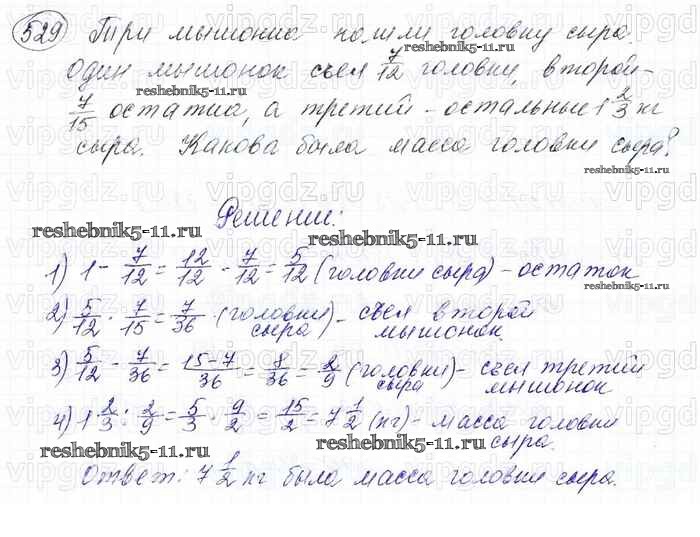 529 Три мышонка нашли головку сыра.
Один мышонок съел 7/12 головки, второй -
7/15 остатка, а третий - остальные 1 2/3 кг
сыра. Какова была масса головки сыра?
Решение:
1) 1 - 7/12 = 12/12 - 7/12 = 5/12 (головки сыра) - остаток
2) 5/12 · 7/15 = 7/36 (головки сыра) - съел второй мышонок.
3) 5/12 - 7/36 = 15-7/36 = 8/36 = 2/9 (головки сыра) - съел третий мышонок
4) 1 2/3 : 2/9 = 5/3 · 9/2 = 15/2 = 7 1/2 (кг) - масса головки сыра.
Ответ: 7 1/2 кг была масса головки сыра.
reshebnik5-11.ru
reshebnik5-11.ru
reshebnik5-11.ru
reshebnik5-11.ru
reshebnik5-11.ru
reshebnik5-11.ru
reshebnik5-11.ru
reshebnik5-11.ru
vipgdz.ru